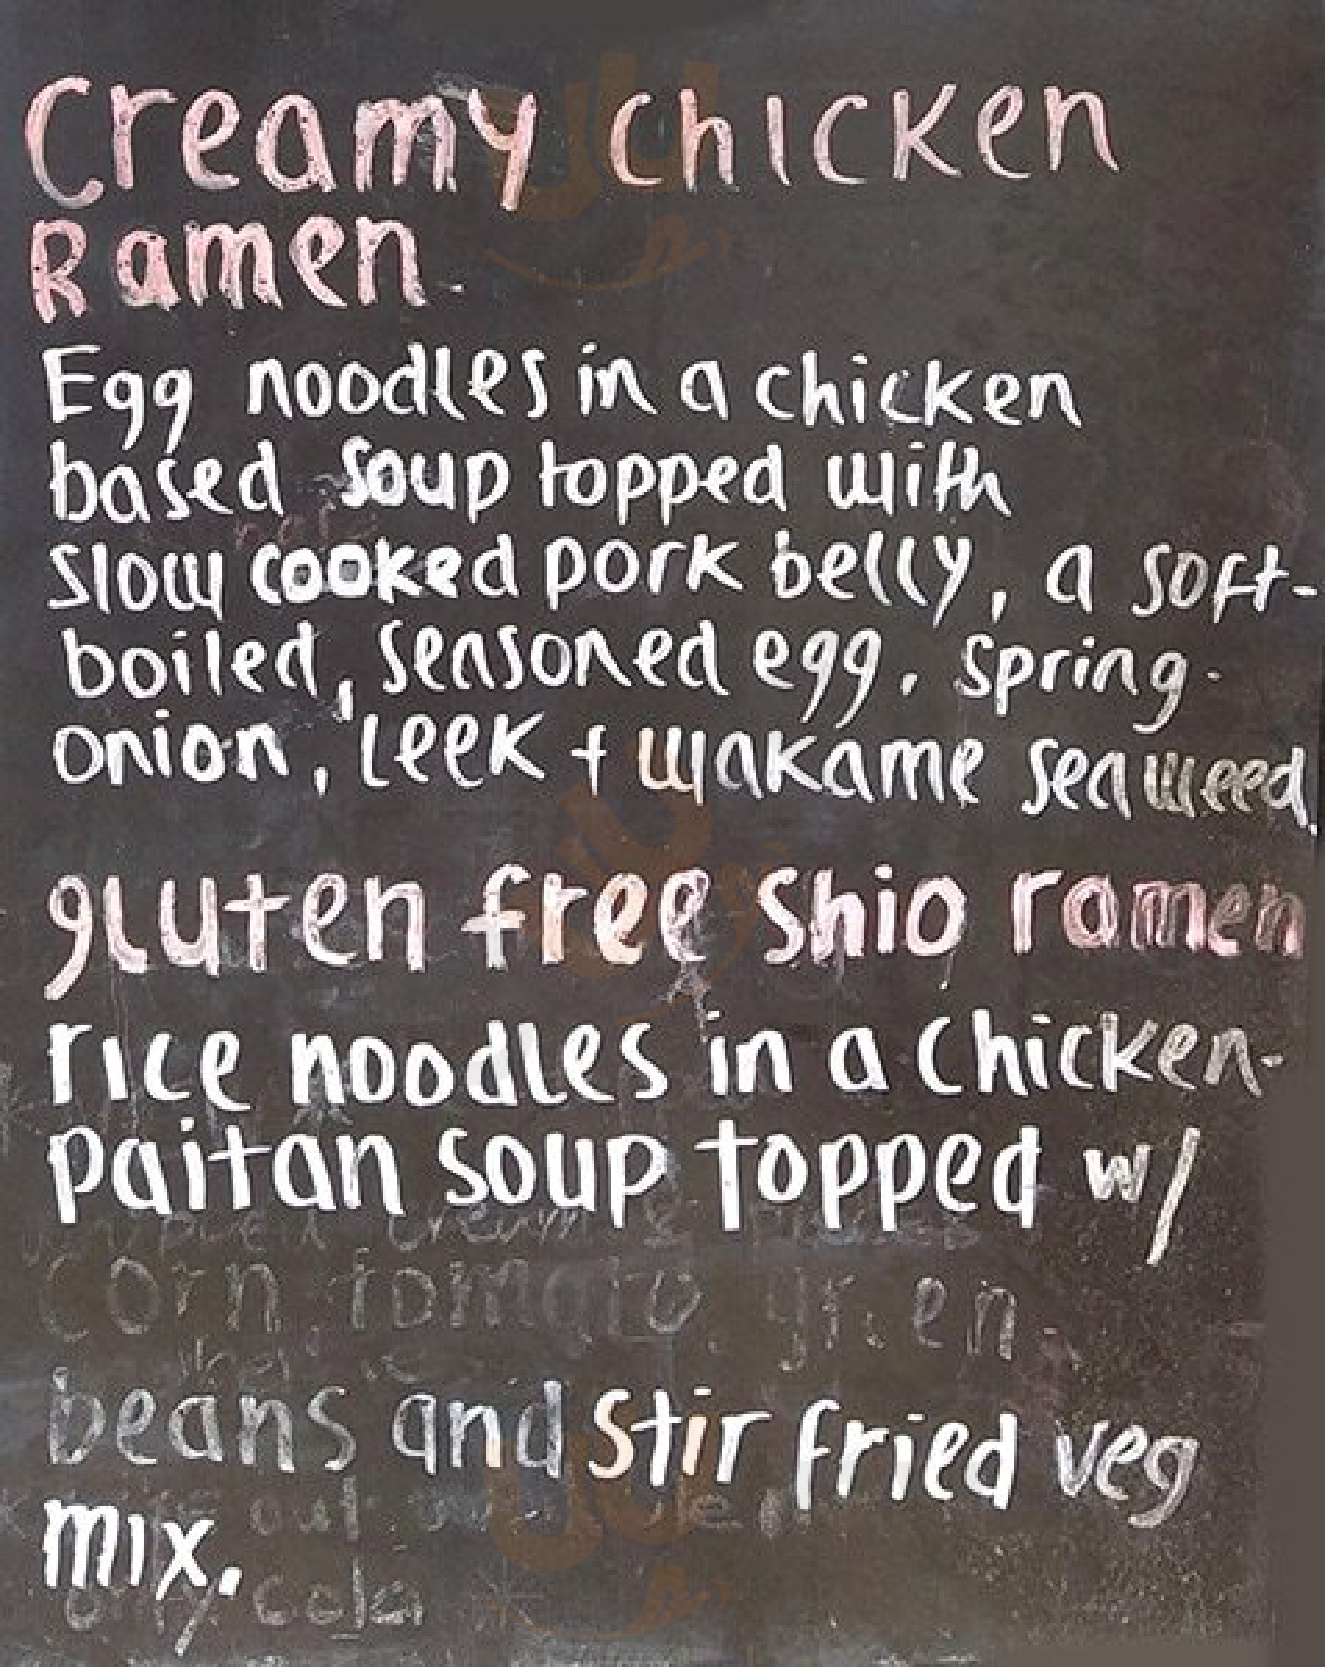 Creamy chicken
Ramen.
Egg noodles in a chicken
based soup topped with
slow cooked pork belly, a soft-
boiled, seasoned egg, spring-
onion, leek + wakame seaweed.
gluten free shio ramen
rice noodles in a chicken-
paitan soup topped w/
corn, tomato, green
beans and stir fried veg
mix.